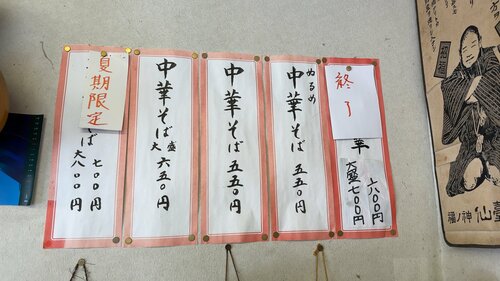 終了
華
六〇〇円
大盛七〇〇円
ぬるめ
中華そば 五五〇円
中華そば 五五〇円
中華そば 大盛 六五〇円
夏期限定
ば 七〇〇円
大八〇〇円
仙臺
福ノ神